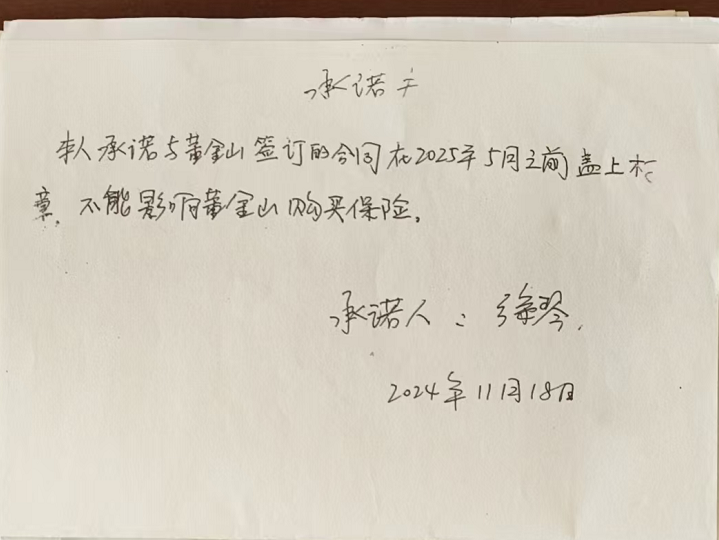 承诺书
本人承诺与董金山签订的合同在2025年5月之前盖上
章,不能影响董金山购买保险。
承诺人:徐琴
2024年11月18日